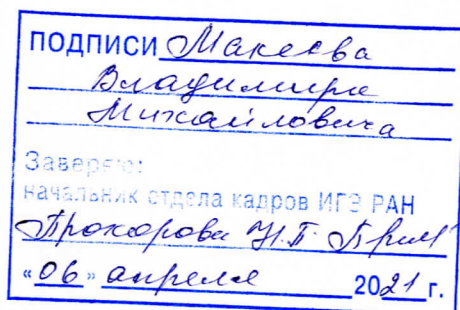 ПОДПИСИ Макеева
Владимира
Михайловича
Заверяю:
начальник отдела кадров ИГЭ РАН
Прохорова Н.П.
«06» апреля 2021 г.